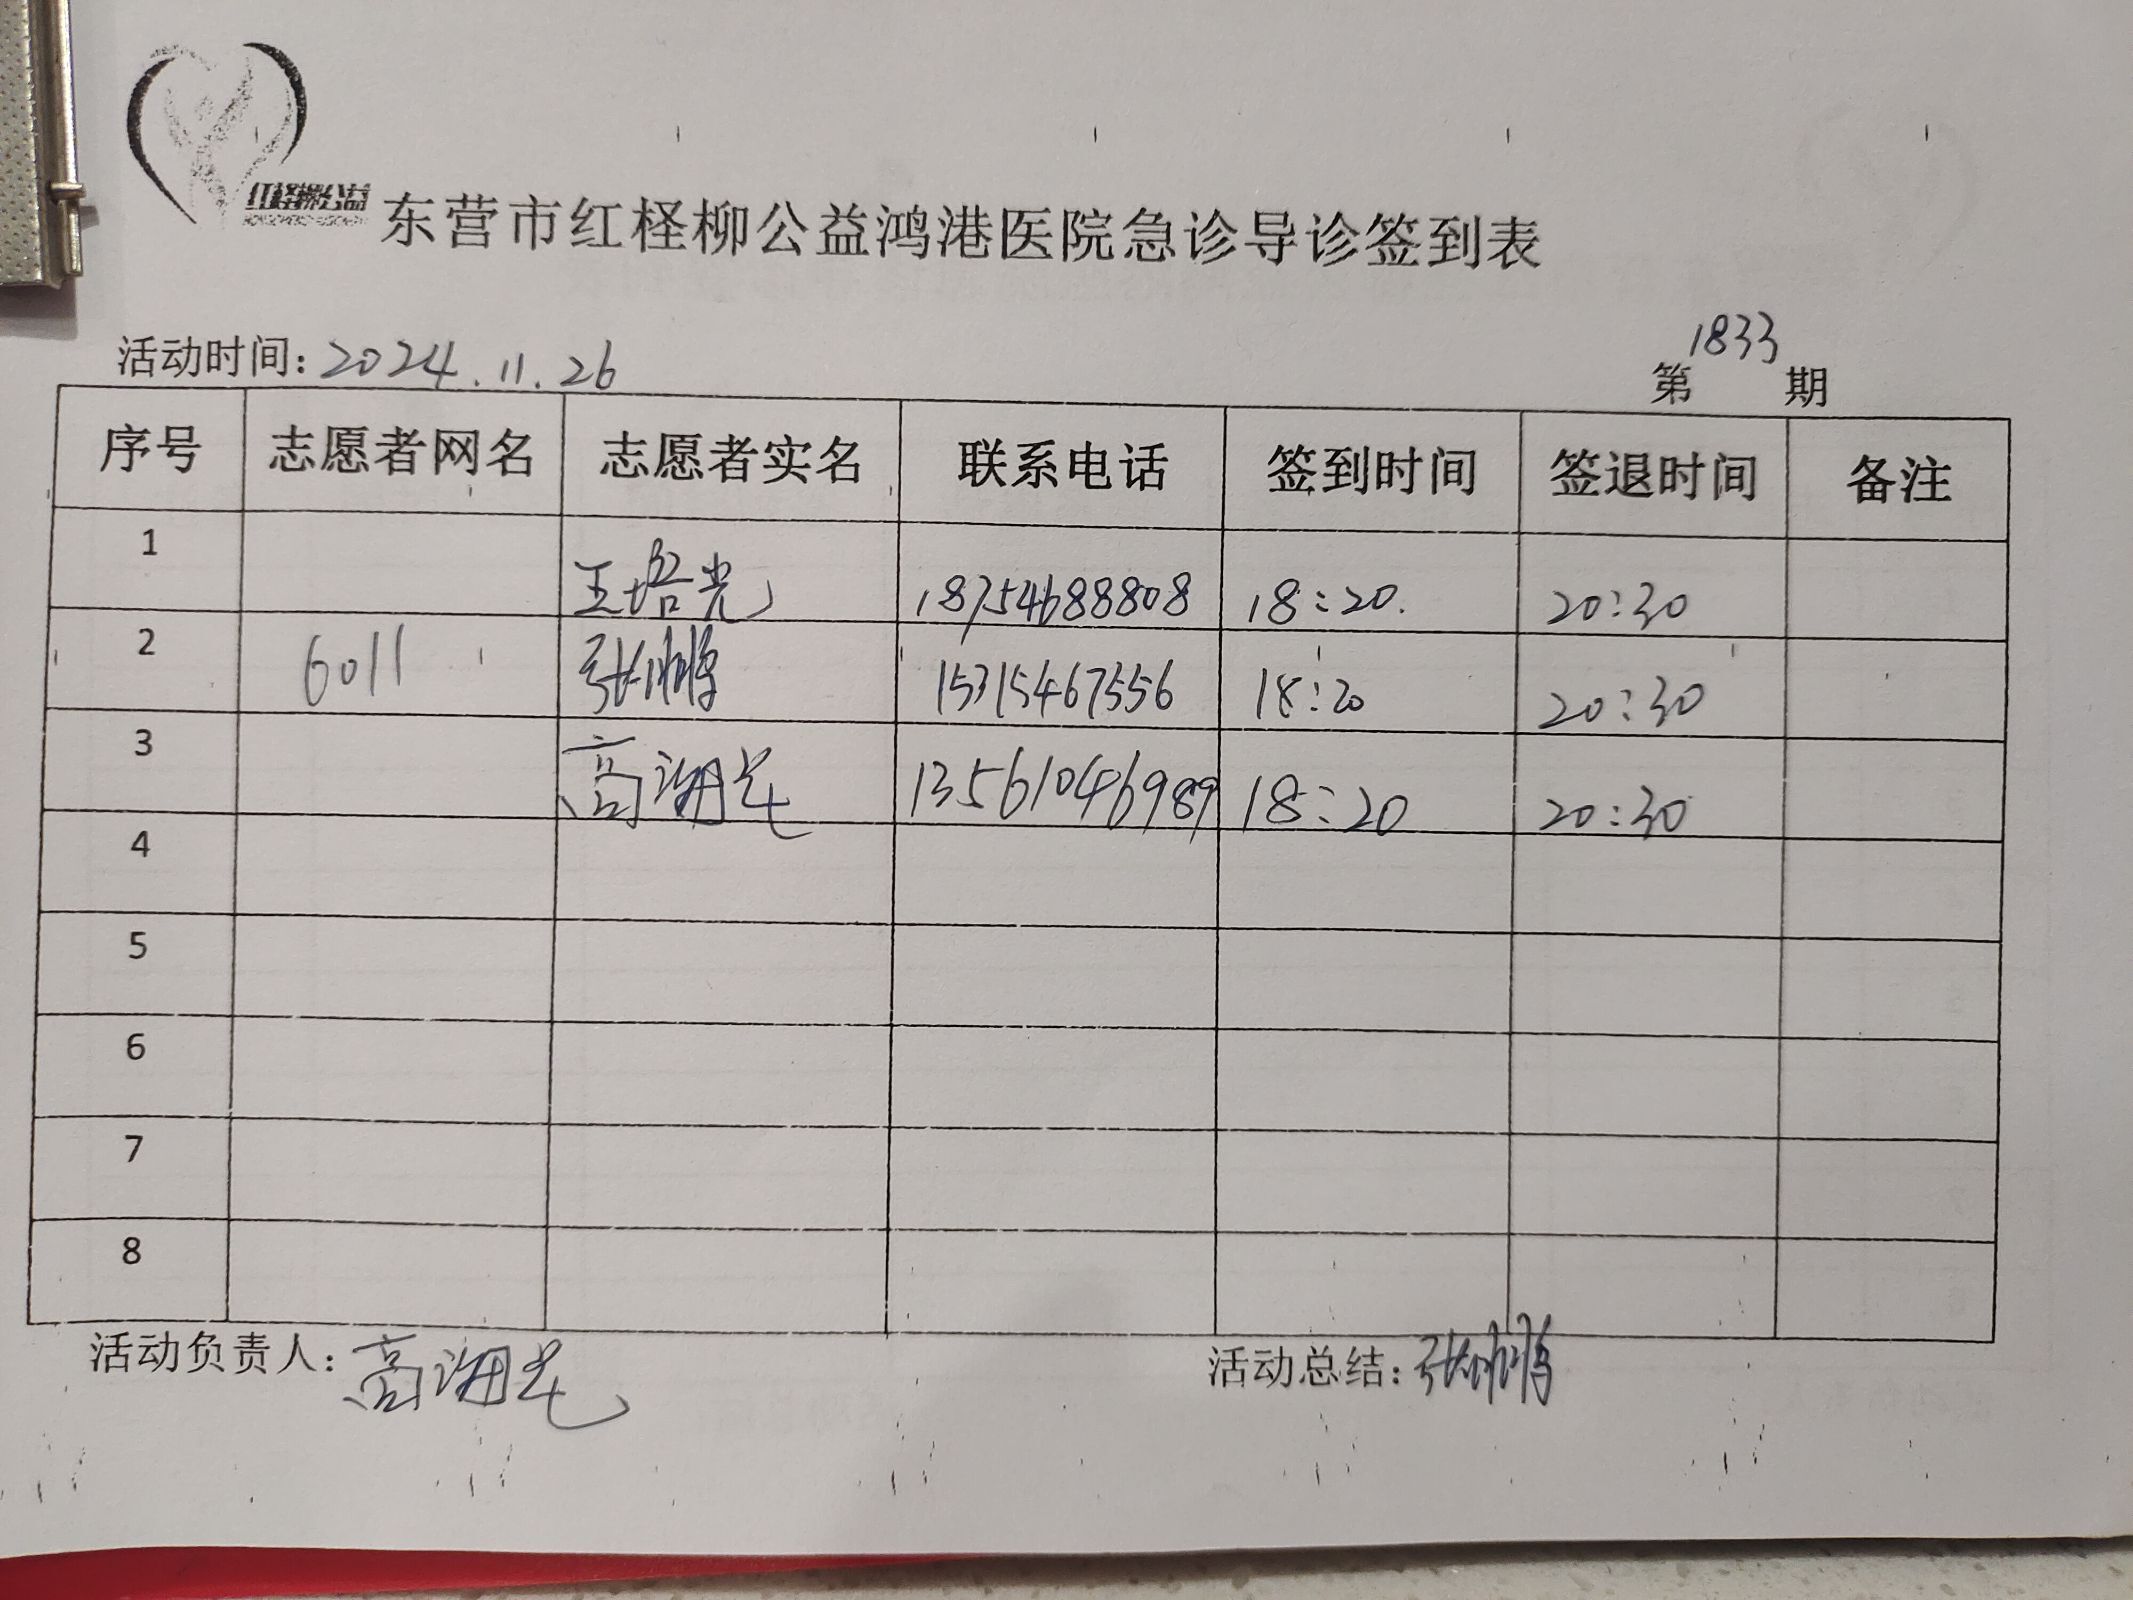 红柽柳公益
东营市红柽柳公益鸿港医院急诊导诊签到表
活动时间:2024.11.26 第1833期
序号 志愿者网名 志愿者实名 联系电话 签到时间 签退时间 备注
1 王培光 18754688808 18:20. 20:30
2 6011 张鹏 15315467556 18:20 20:30
3 高 13561046989 18:20 20:30
4
5
6
7
8
活动负责人:高 活动总结:张鹏